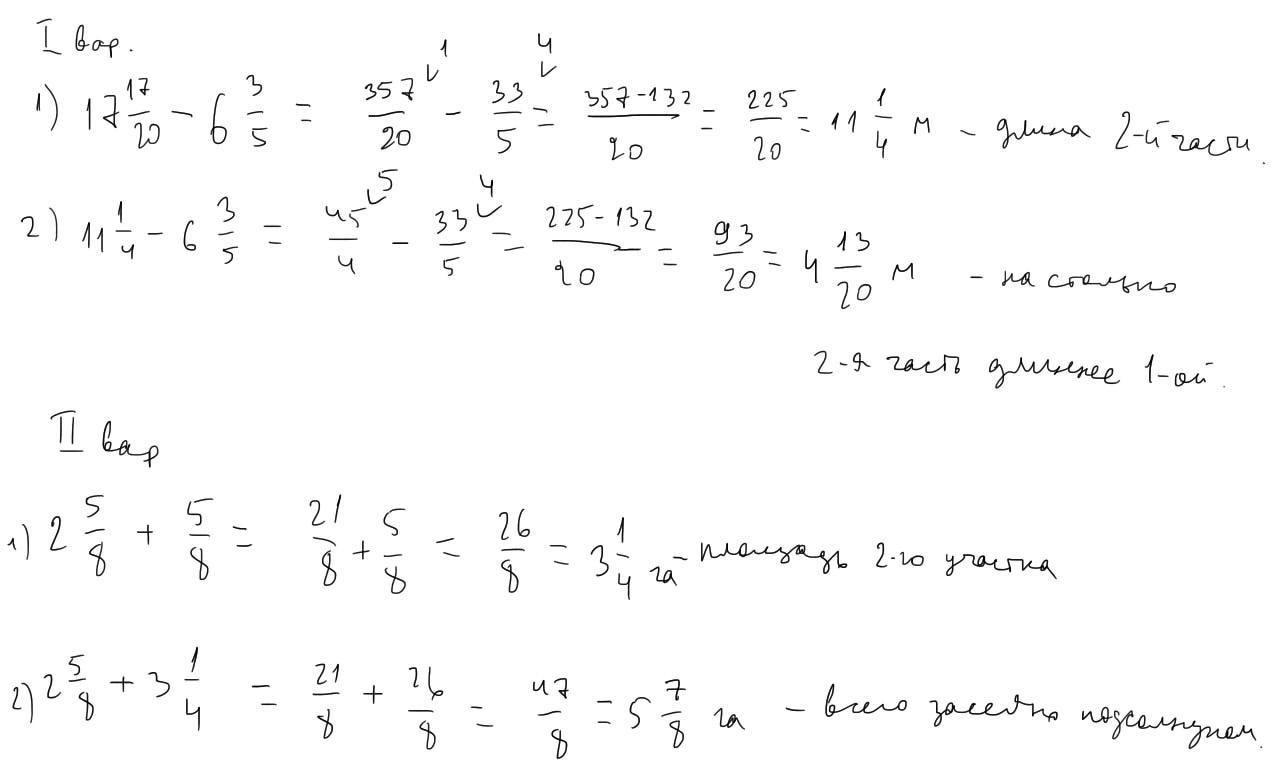 I вар.
1) 17 17/20 − 6 3/5 = 357/20 ✓1 − 33/5 ✓4 = 357−132/20 = 225/20 = 11 1/4 м – длина 2-й части.
2) 11 1/4 − 6 3/5 = 45/4 ✓5 − 33/5 ✓4 = 225−132/20 = 93/20 = 4 13/20 м – на столько
2-я часть длиннее 1-ой.
II вар
1) 2 5/8 + 5/8 = 21/8 + 5/8 = 26/8 = 3 1/4 га – площадь 2-го участка
2) 2 5/8 + 3 1/4 = 21/8 + 26/8 = 47/8 = 5 7/8 га – всего засеяно подсолнухом.